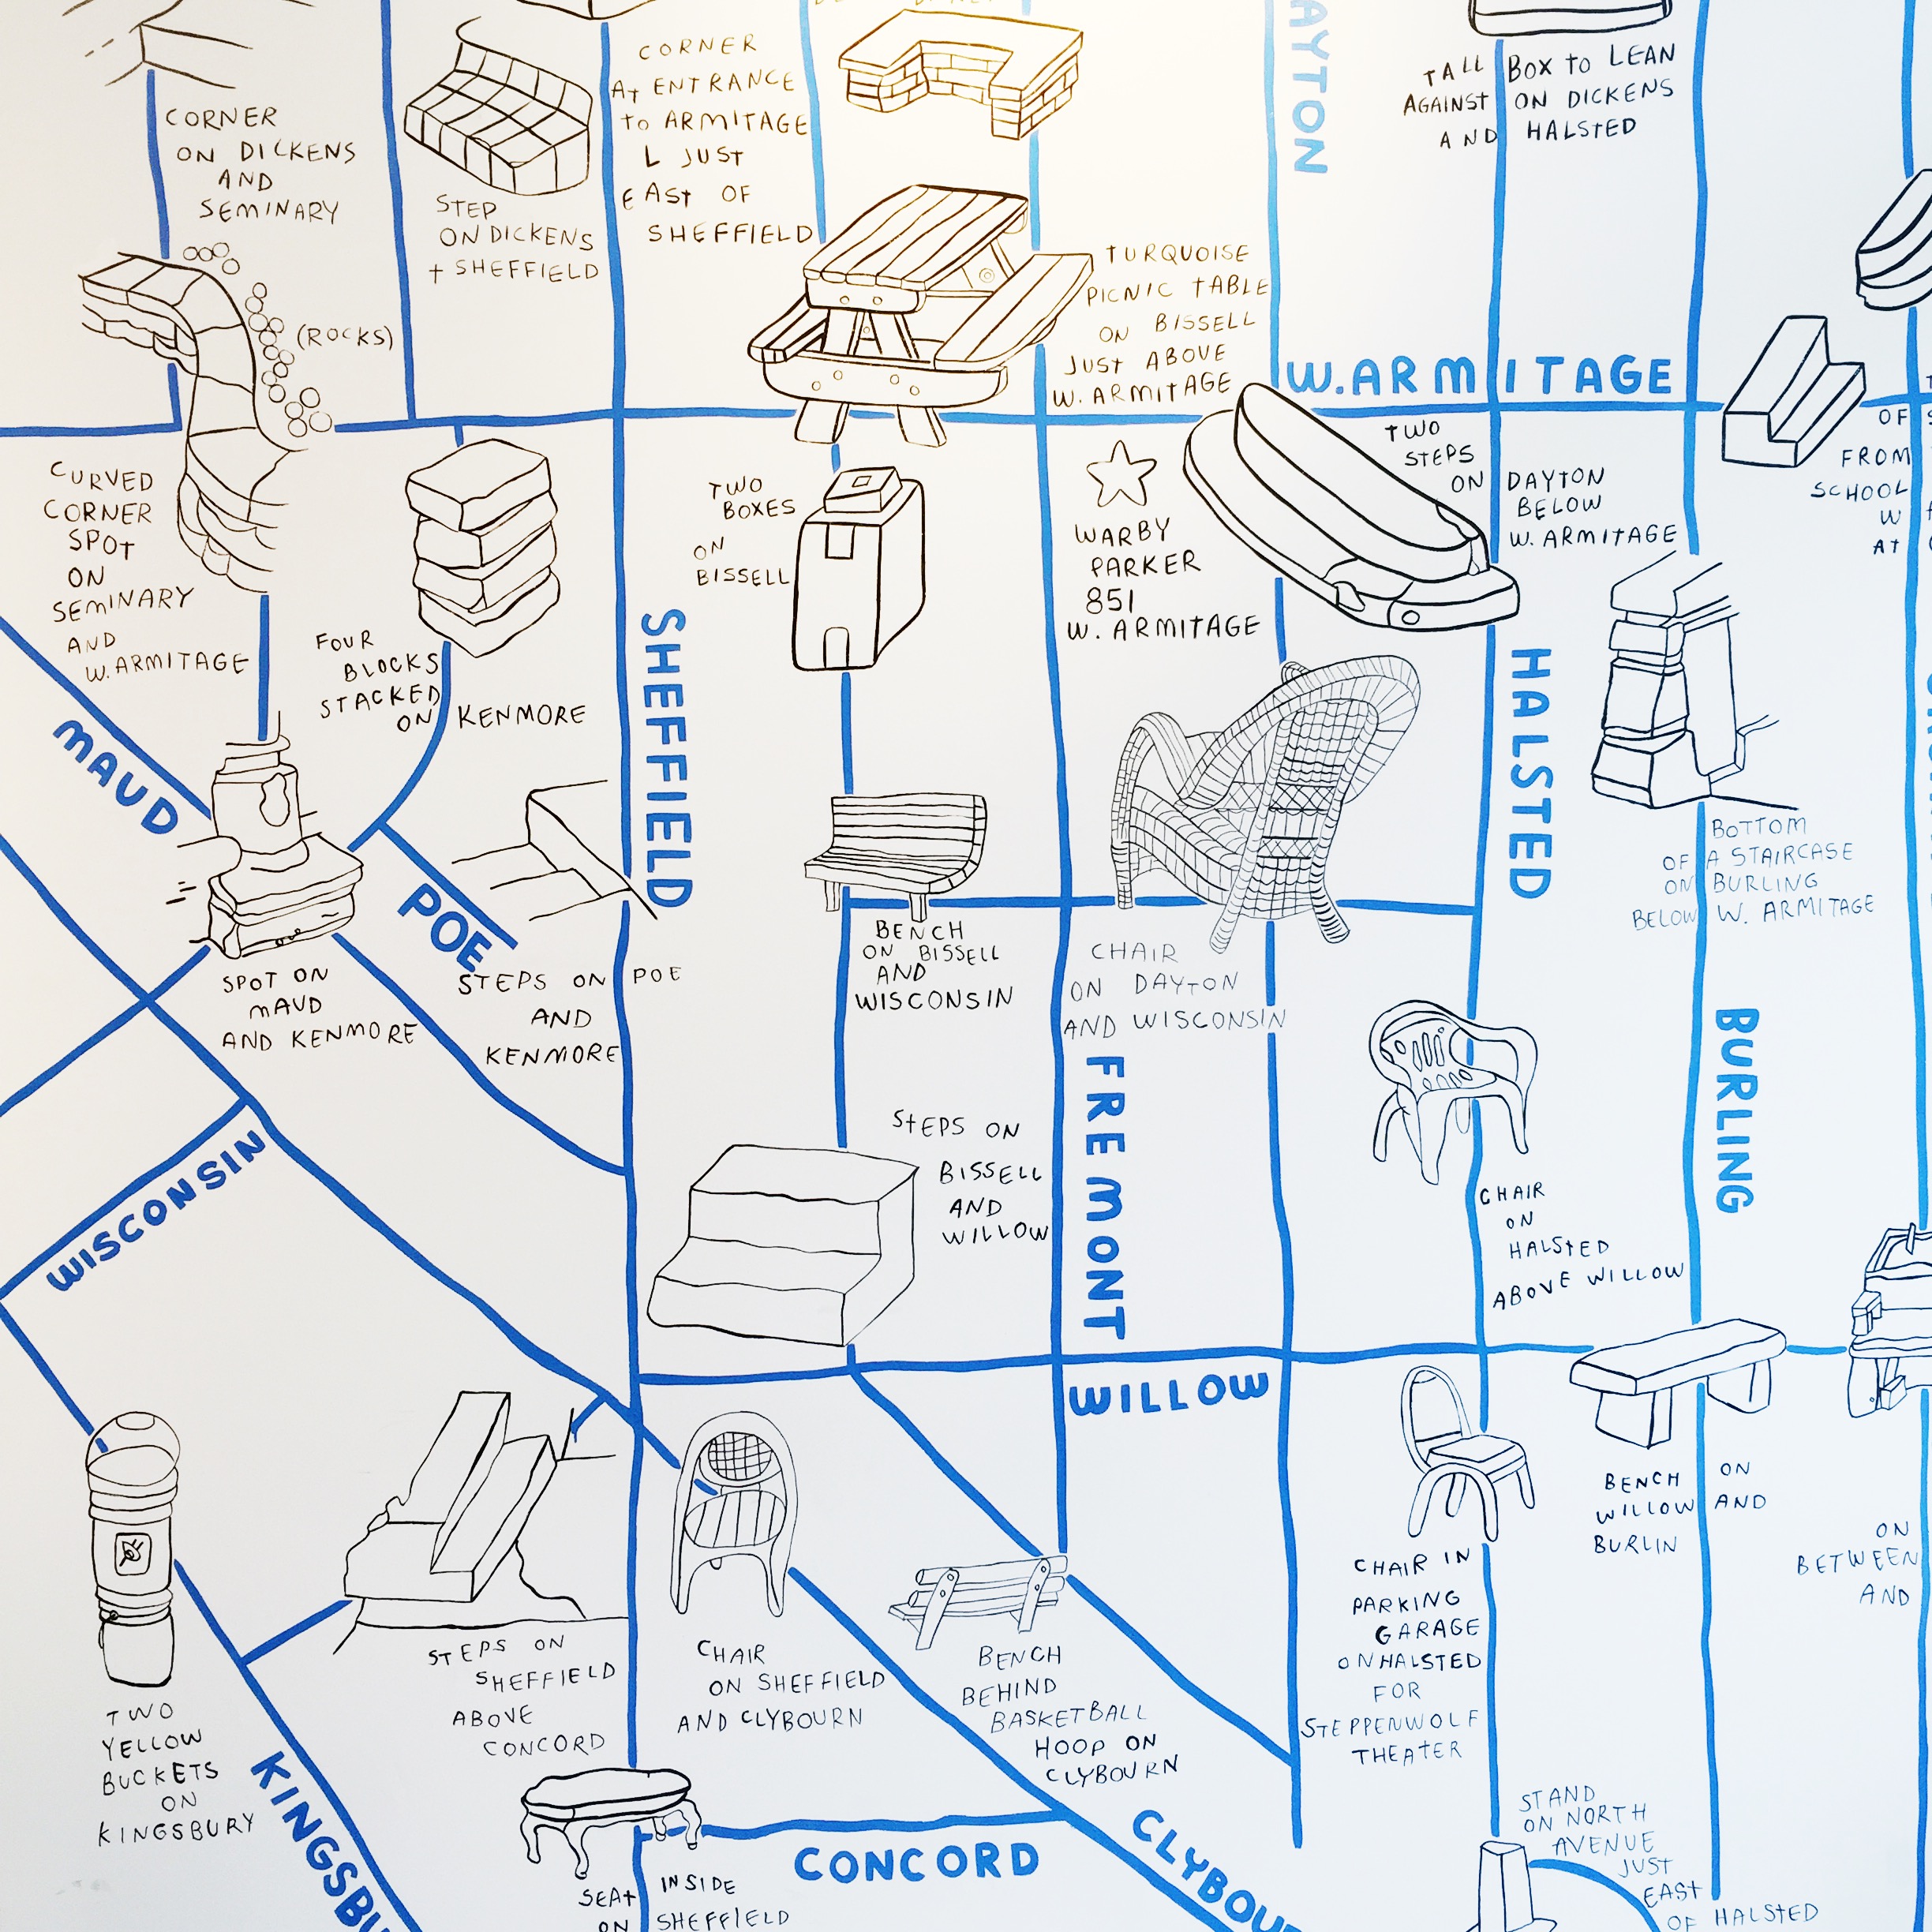 CORNER
ON DICKENS
AND
SEMINARY
STEP
ON DICKENS
+ SHEFFIELD
CORNER
AT ENTRANCE
TO ARMITAGE
L JUST
EAST OF
SHEFFIELD
AYTON
TALL BOX TO LEAN
AGAINST ON DICKENS
AND HALSTED
(ROCKS)
TURQUOISE
PICNIC TABLE
ON BISSELL
JUST ABOVE
W. ARMITAGE
W. ARMITAGE
CURVED
CORNER
SPOT
ON
SEMINARY
AND
W. ARMITAGE
FOUR
BLOCKS
STACKED
ON KENMORE
TWO
BOXES
ON
BISSELL
WARBY
PARKER
851
W. ARMITAGE
TWO
STEPS
ON DAYTON
BELOW
W. ARMITAGE
OF
FROM
SCHOOL
W
AT
MAUD
SHEFFIELD
HALSTED
BOTTOM
OF A STAIRCASE
ON BURLING
BELOW W. ARMITAGE
POE
SPOT ON
MAUD
AND KENMORE
STEPS ON POE
AND
KENMORE
BENCH
ON BISSELL
AND
WISCONSIN
CHAIR
ON DAYTON
AND WISCONSIN
FREMONT
BURLING
WISCONSIN
STEPS ON
BISSELL
AND
WILLOW
CHAIR
ON
HALSTED
ABOVE WILLOW
WILLOW
BENCH ON
WILLOW AND
BURLIN
ON
BETWEEN
AND
CHAIR IN
PARKING
GARAGE
ON HALSTED
FOR
STEPPENWOLF
THEATER
TWO
YELLOW
BUCKETS
ON
KINGSBURY
STEPS ON
SHEFFIELD
ABOVE
CONCORD
CHAIR
ON SHEFFIELD
AND CLYBOURN
BENCH
BEHIND
BASKETBALL
HOOP ON
CLYBOURN
KINGSBU
CONCORD
CLYBOU
STAND
ON NORTH
AVENUE
JUST
EAST
OF HALSTED
SEAT INSIDE
ON SHEFFIELD